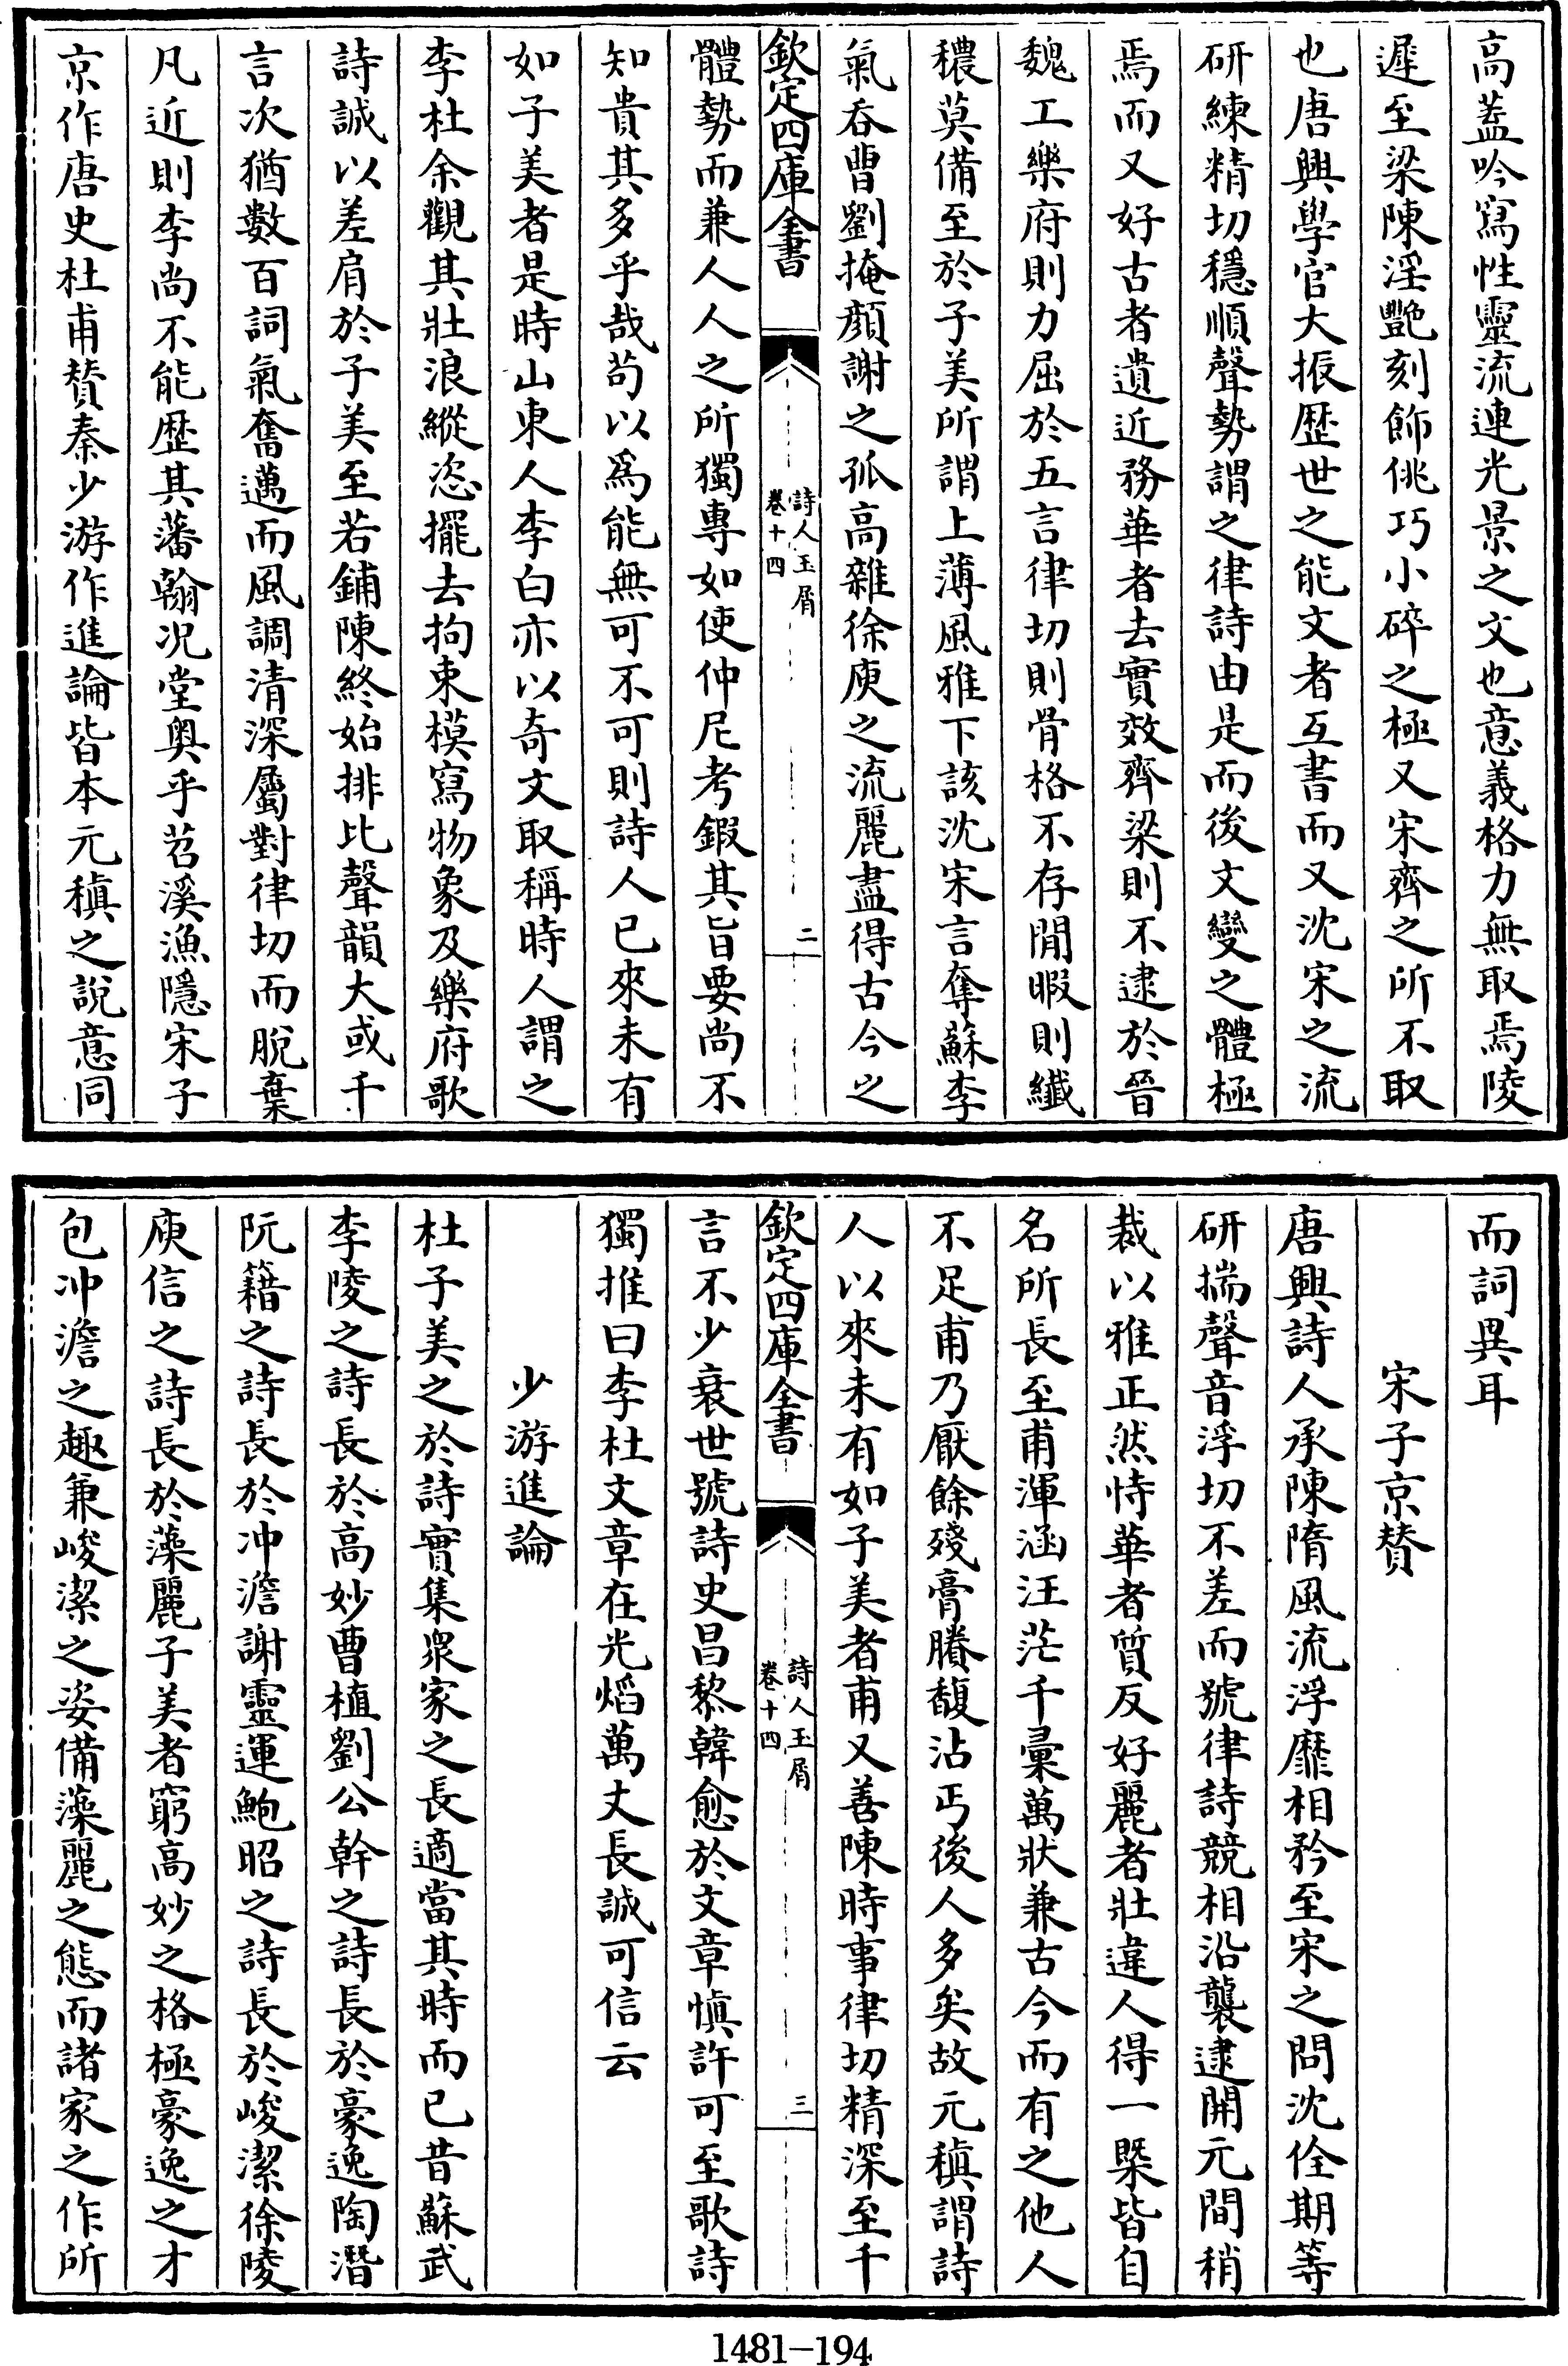 高蓋吟寫性靈流連光景之文也意義格力無取焉陵
遲至梁陳淫艷刻飾佻巧小碎之極又宋齊之所不取
也唐興學官大振歷世之能文者互書而又沈宋之流
研練精切穩順聲勢謂之律詩由是而後文變之體極
焉而又好古者遺近務華者去實效齊梁則不逮於晉
魏工樂府則力屈於五言律切則骨格不存閒暇則纖
穠莫備至於子美所謂上薄風雅下該沈宋言奪蘇李
氣吞曹劉掩顏謝之孤高雜徐庾之流麗盡得古今之
欽定四庫全書
詩人玉屑
卷十四
二
體勢而兼人人之所獨專如使仲尼考鍛其旨要尚不
知貴其多乎哉苟以為能無可不可則詩人已來未有
如子美者是時山東人李白亦以奇文取稱時人謂之
李杜余觀其壯浪縱恣擺去拘束模寫物象及樂府歌
詩誠以差肩於子美至若鋪陳終始排比聲韻大或千
言次猶數百詞氣奮邁而風調清深屬對律切而脫棄
凡近則李尚不能歷其藩翰况堂奧乎苕溪漁隱宋子
京作唐史杜甫贊秦少游作進論皆本元稹之說意同
而詞異耳
宋子京贊
唐興詩人承陳隋風流浮靡相矜至宋之問沈佺期等
研揣聲音浮切不差而號律詩競相沿襲逮開元間稍
裁以雅正然恃華者質反好麗者壯違人得一槩皆自
名所長至甫渾涵汪茫千彙萬狀兼古今而有之他人
不足甫乃厭餘殘膏賸馥沾丐後人多矣故元稹謂詩
人以來未有如子美者甫又善陳時事律切精深至千
欽定四庫全書
詩人玉屑
卷十四
三
言不少衰世號詩史昌黎韓愈於文章愼許可至歌詩
獨推曰李杜文章在光熖萬丈長誠可信云
少游進論
杜子美之於詩實集衆家之長適當其時而已昔蘇武
李陵之詩長於高妙曹植劉公幹之詩長於豪逸陶潛
阮籍之詩長於冲澹謝靈運鮑昭之詩長於峻潔徐陵
庾信之詩長於藻麗子美者窮高妙之格極豪逸之才
包冲澹之趣兼峻潔之姿備藻麗之態而諸家之作所
1481-194